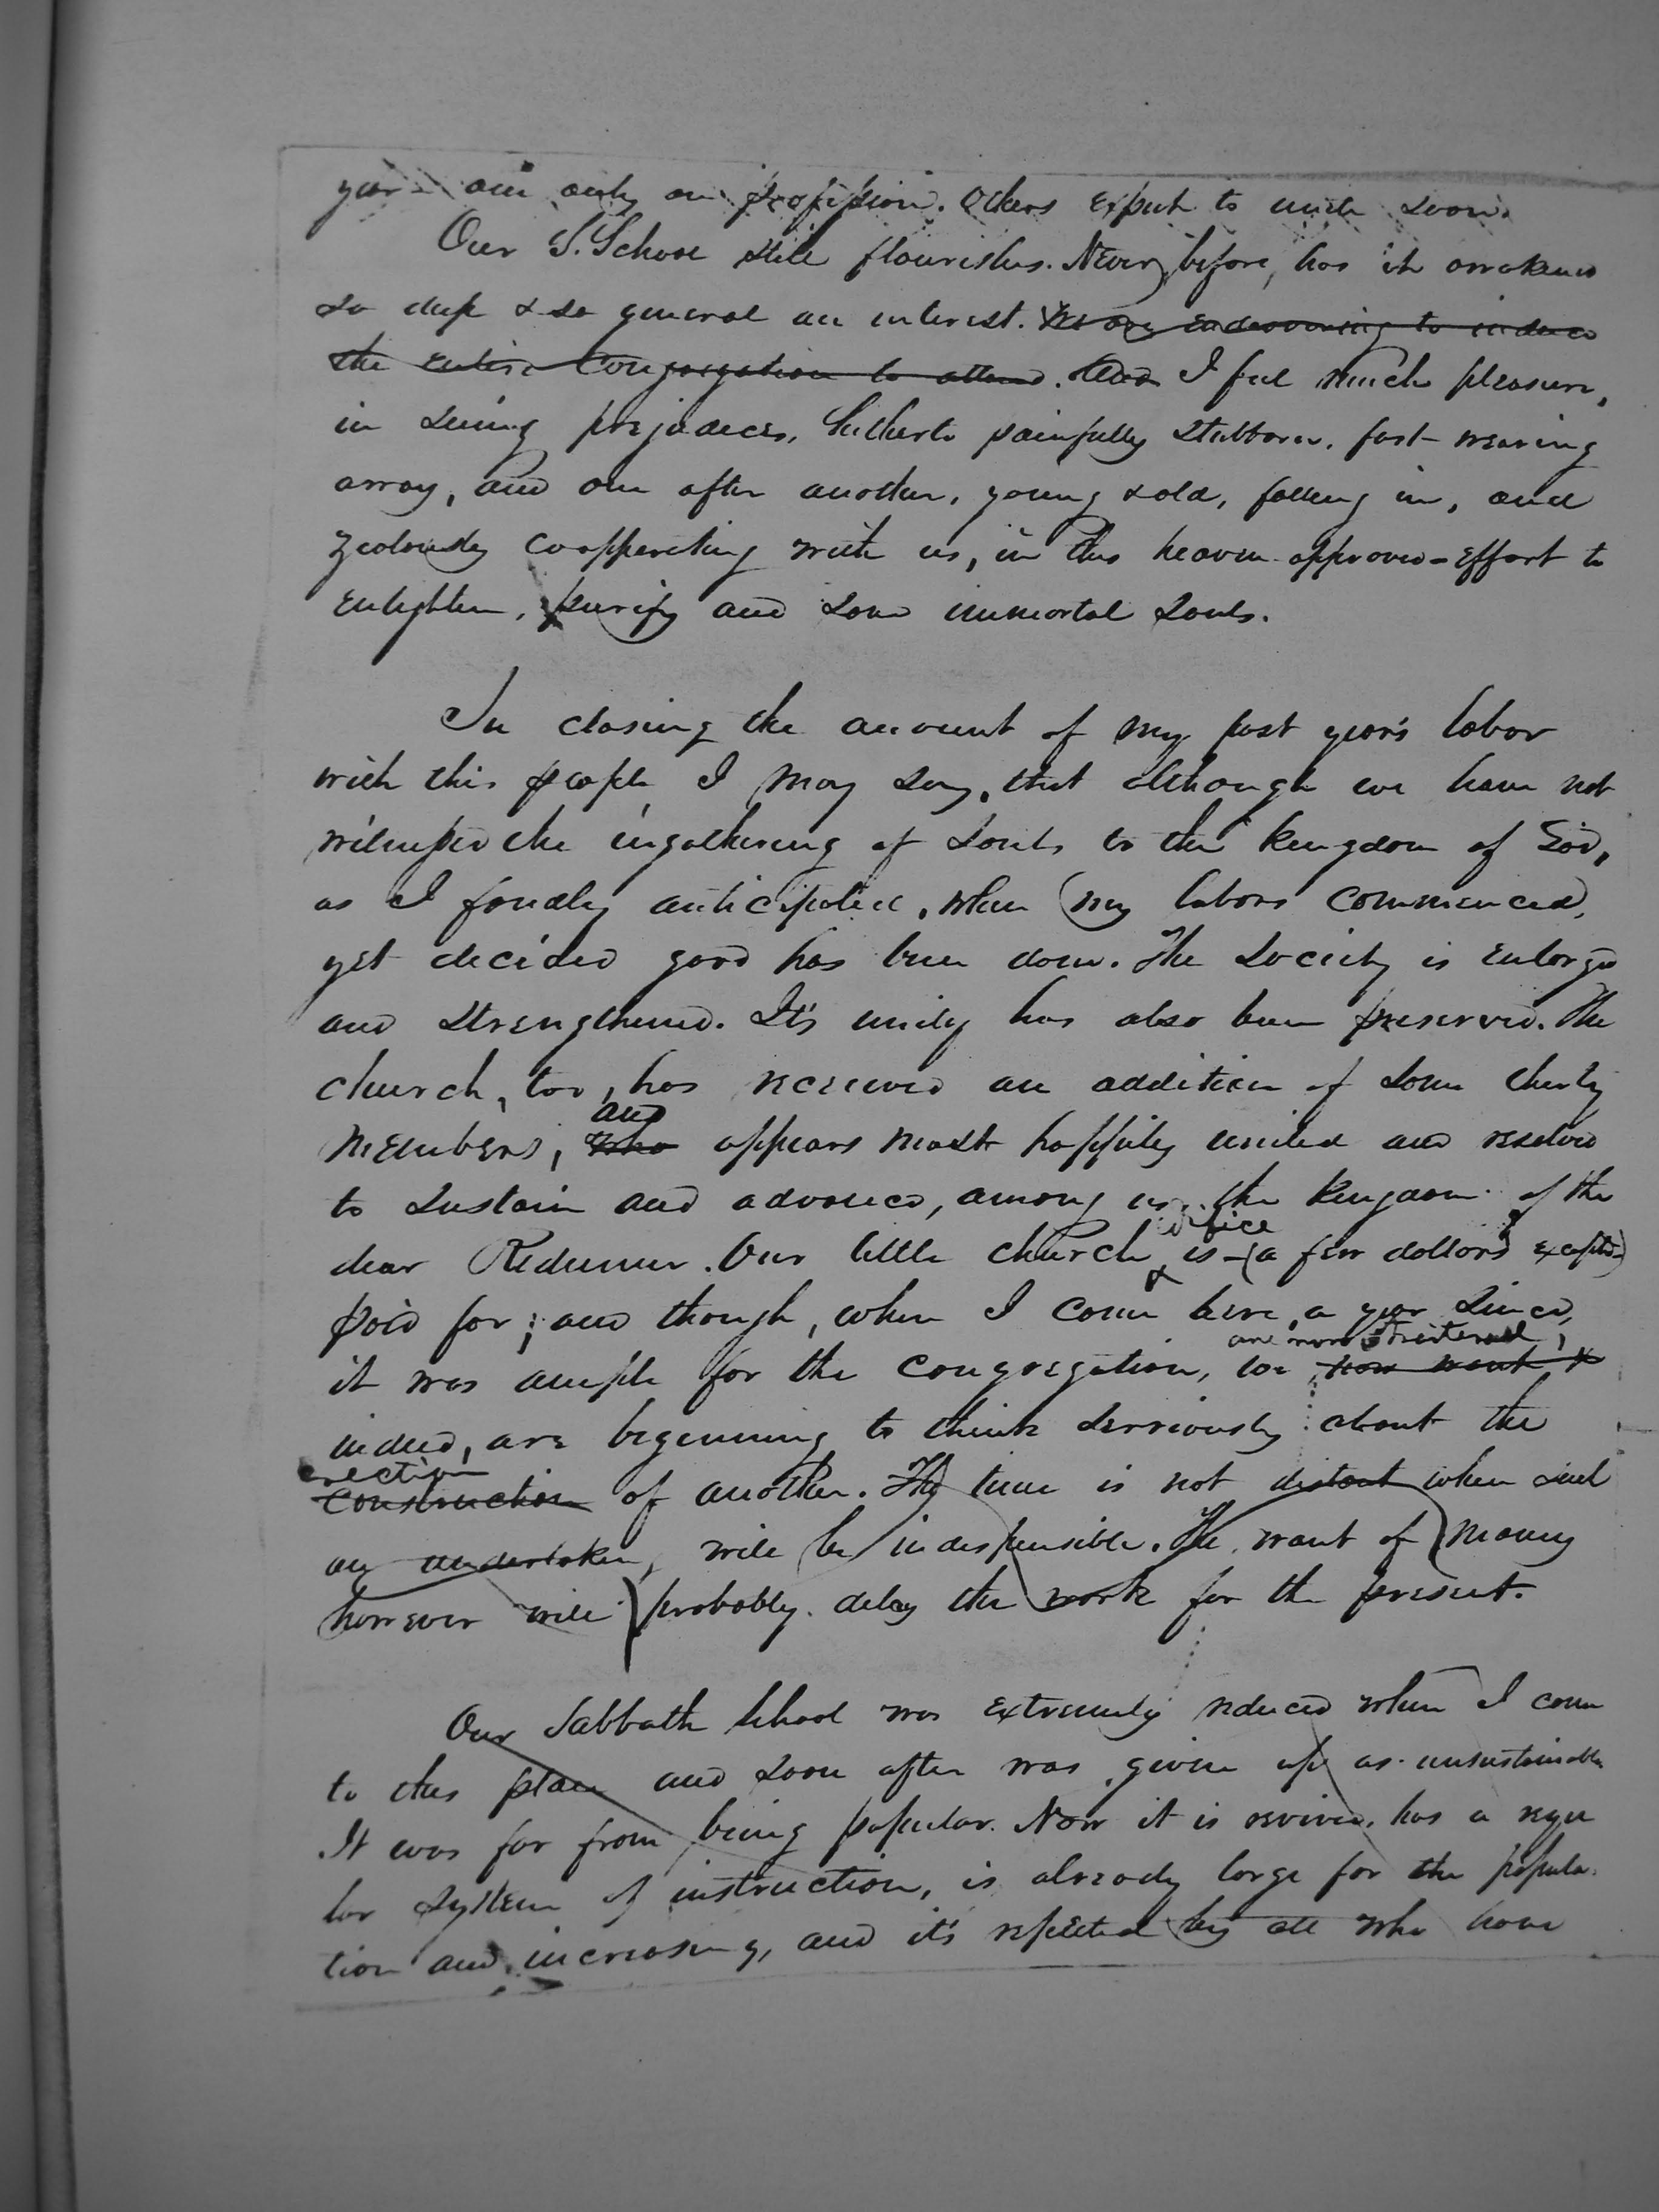 year – one only on profession. Others expect to unite soon.
Our S. School still flourishes. Never, before, has it awakened
so deep & so general an interest. We are endeavouring to induce
the entire Congregation to attend. And I feel much pleasure,
in seeing prejudices, hitherto painfully stubborn, fast wearing
away, and one after another, young & old, falling in, and
zealously cooppereting with us, in this heaven-approved-effort to
enlighten, purify and save immortal souls.
In closing the account of my past year's labor
with this people, I may say, that although we have not
witnessed the ingathering of souls to the kingdom of God,
as I fondly anticipated, when my labors commenced,
yet decided good has been done. The society is enlarged
and strengthened. It's unity has also been preserved. The
church, too, has received an addition of some thirty
and
members, who appears most happily united and resolved
to sustain and advance, among us, the kingdom of the
edifice
dear Redeemer. Our little church is – (a few dollars excepted)
paid for; and though, when I came here, a year since,
are now straitened,
it was ample for the congregation, we now want &
indeed, are beginning to think serriously about the
erection
construction of another. The time is not distant when such
an undertaken, will be indespensible. The want of money
however will probably delay the work for the present.
Our Sabbath School was extremely reduced when I came
to this place and soon after was given up as unsustainable
It was far from being popular. Now it is revived, has a regu
lar system of instruction, is already large for the popula-
tion and increasing, and it's respected by all who have